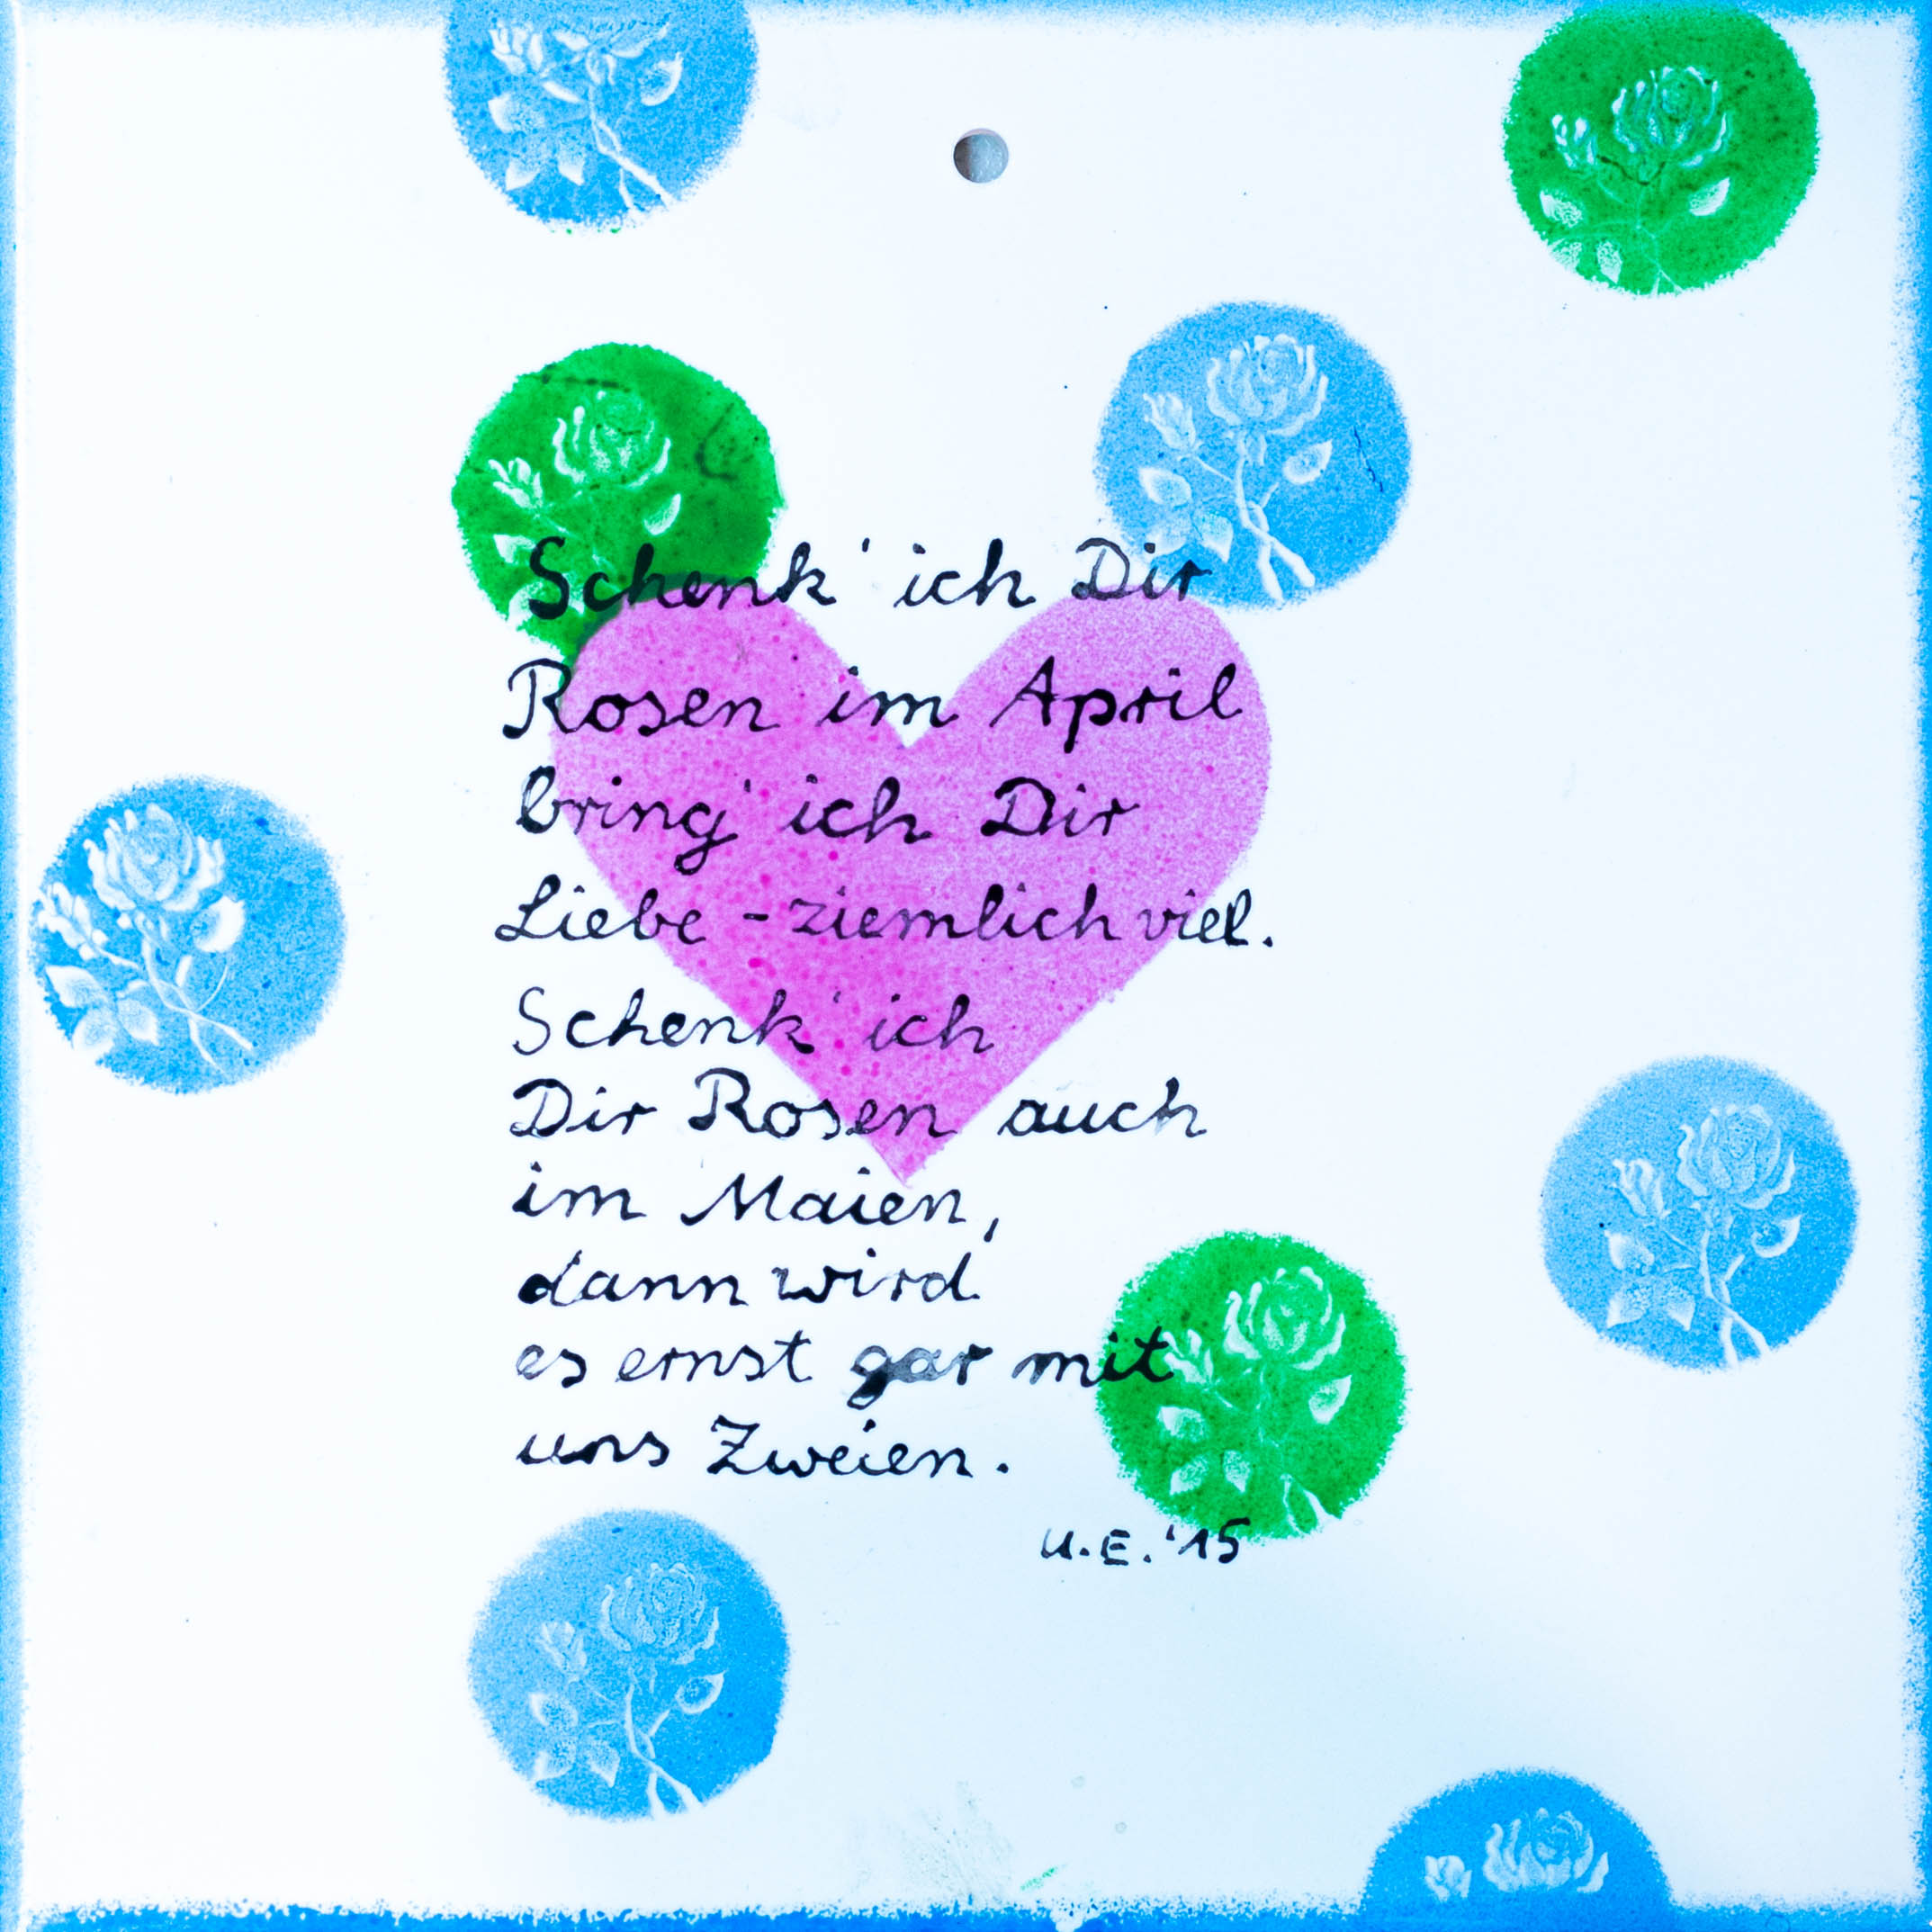 Schenk' ich Dir
Rosen im April
bring' ich Dir
Liebe - ziemlich viel.
Schenk' ich
Dir Rosen auch
im Maien,
dann wird
es ernst gar mit
uns Zweien.
U.E. '15